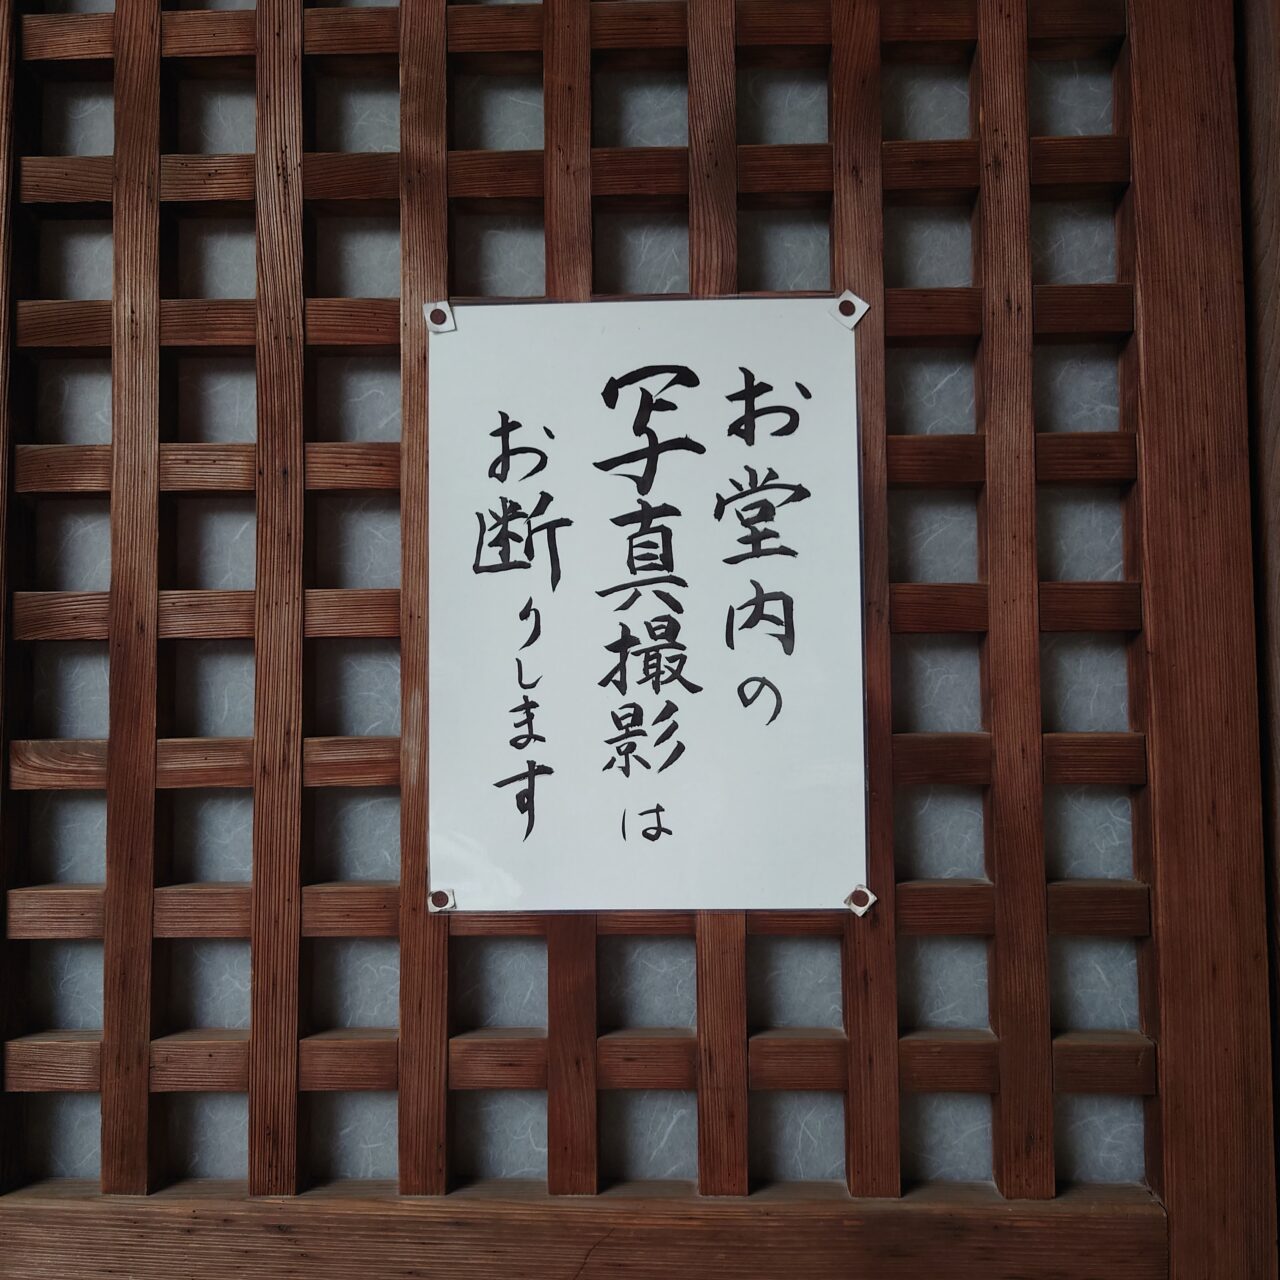 お堂内の
写真撮影は
お断りします